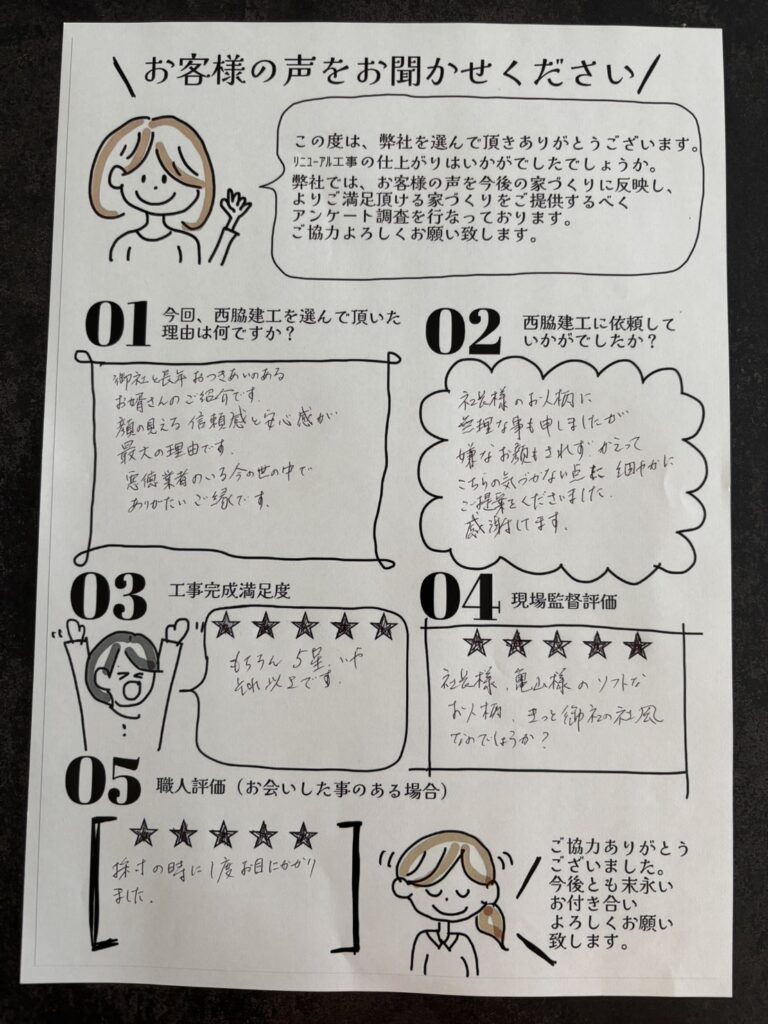 お客様の声をお聞かせください
この度は、弊社を選んで頂きありがとうございます。
リニューアル工事の仕上がりはいかがでしたでしょうか。
弊社では、お客様の声を今後の家づくりに反映し、
よりご満足頂ける家づくりをご提供するべく
アンケート調査を行なっております。
ご協力よろしくお願い致します。
01 今回、西脇建工を選んで頂いた
理由は何ですか？
御社と長年おつきあいのある
お婿さんのご紹介です。
顔の見える信頼感と安心感が
最大の理由です。
悪徳業者のいる今の世の中で
ありがたいご縁です。
02 西脇建工に依頼して
いかがでしたか？
社長様のお人柄に
無理な事も申しましたが
嫌なお顔もされず かえって
こちらの気づかない点も 細やかに
ご提案をくださいました。
感謝してます。
03 工事完成満足度
★★★★★
もちろん 5星、いや
それ以上です。
04 現場監督評価
★★★★★
社長様、亀山様のソフトな
お人柄、きっと御社の社風
なのでしょうか？
05 職人評価（お会いした事のある場合）
★★★★★
採寸の時に1度お目にかかり
ました。
ご協力ありがとう
ございました。
今後とも末永い
お付き合い
よろしくお願い
致します。